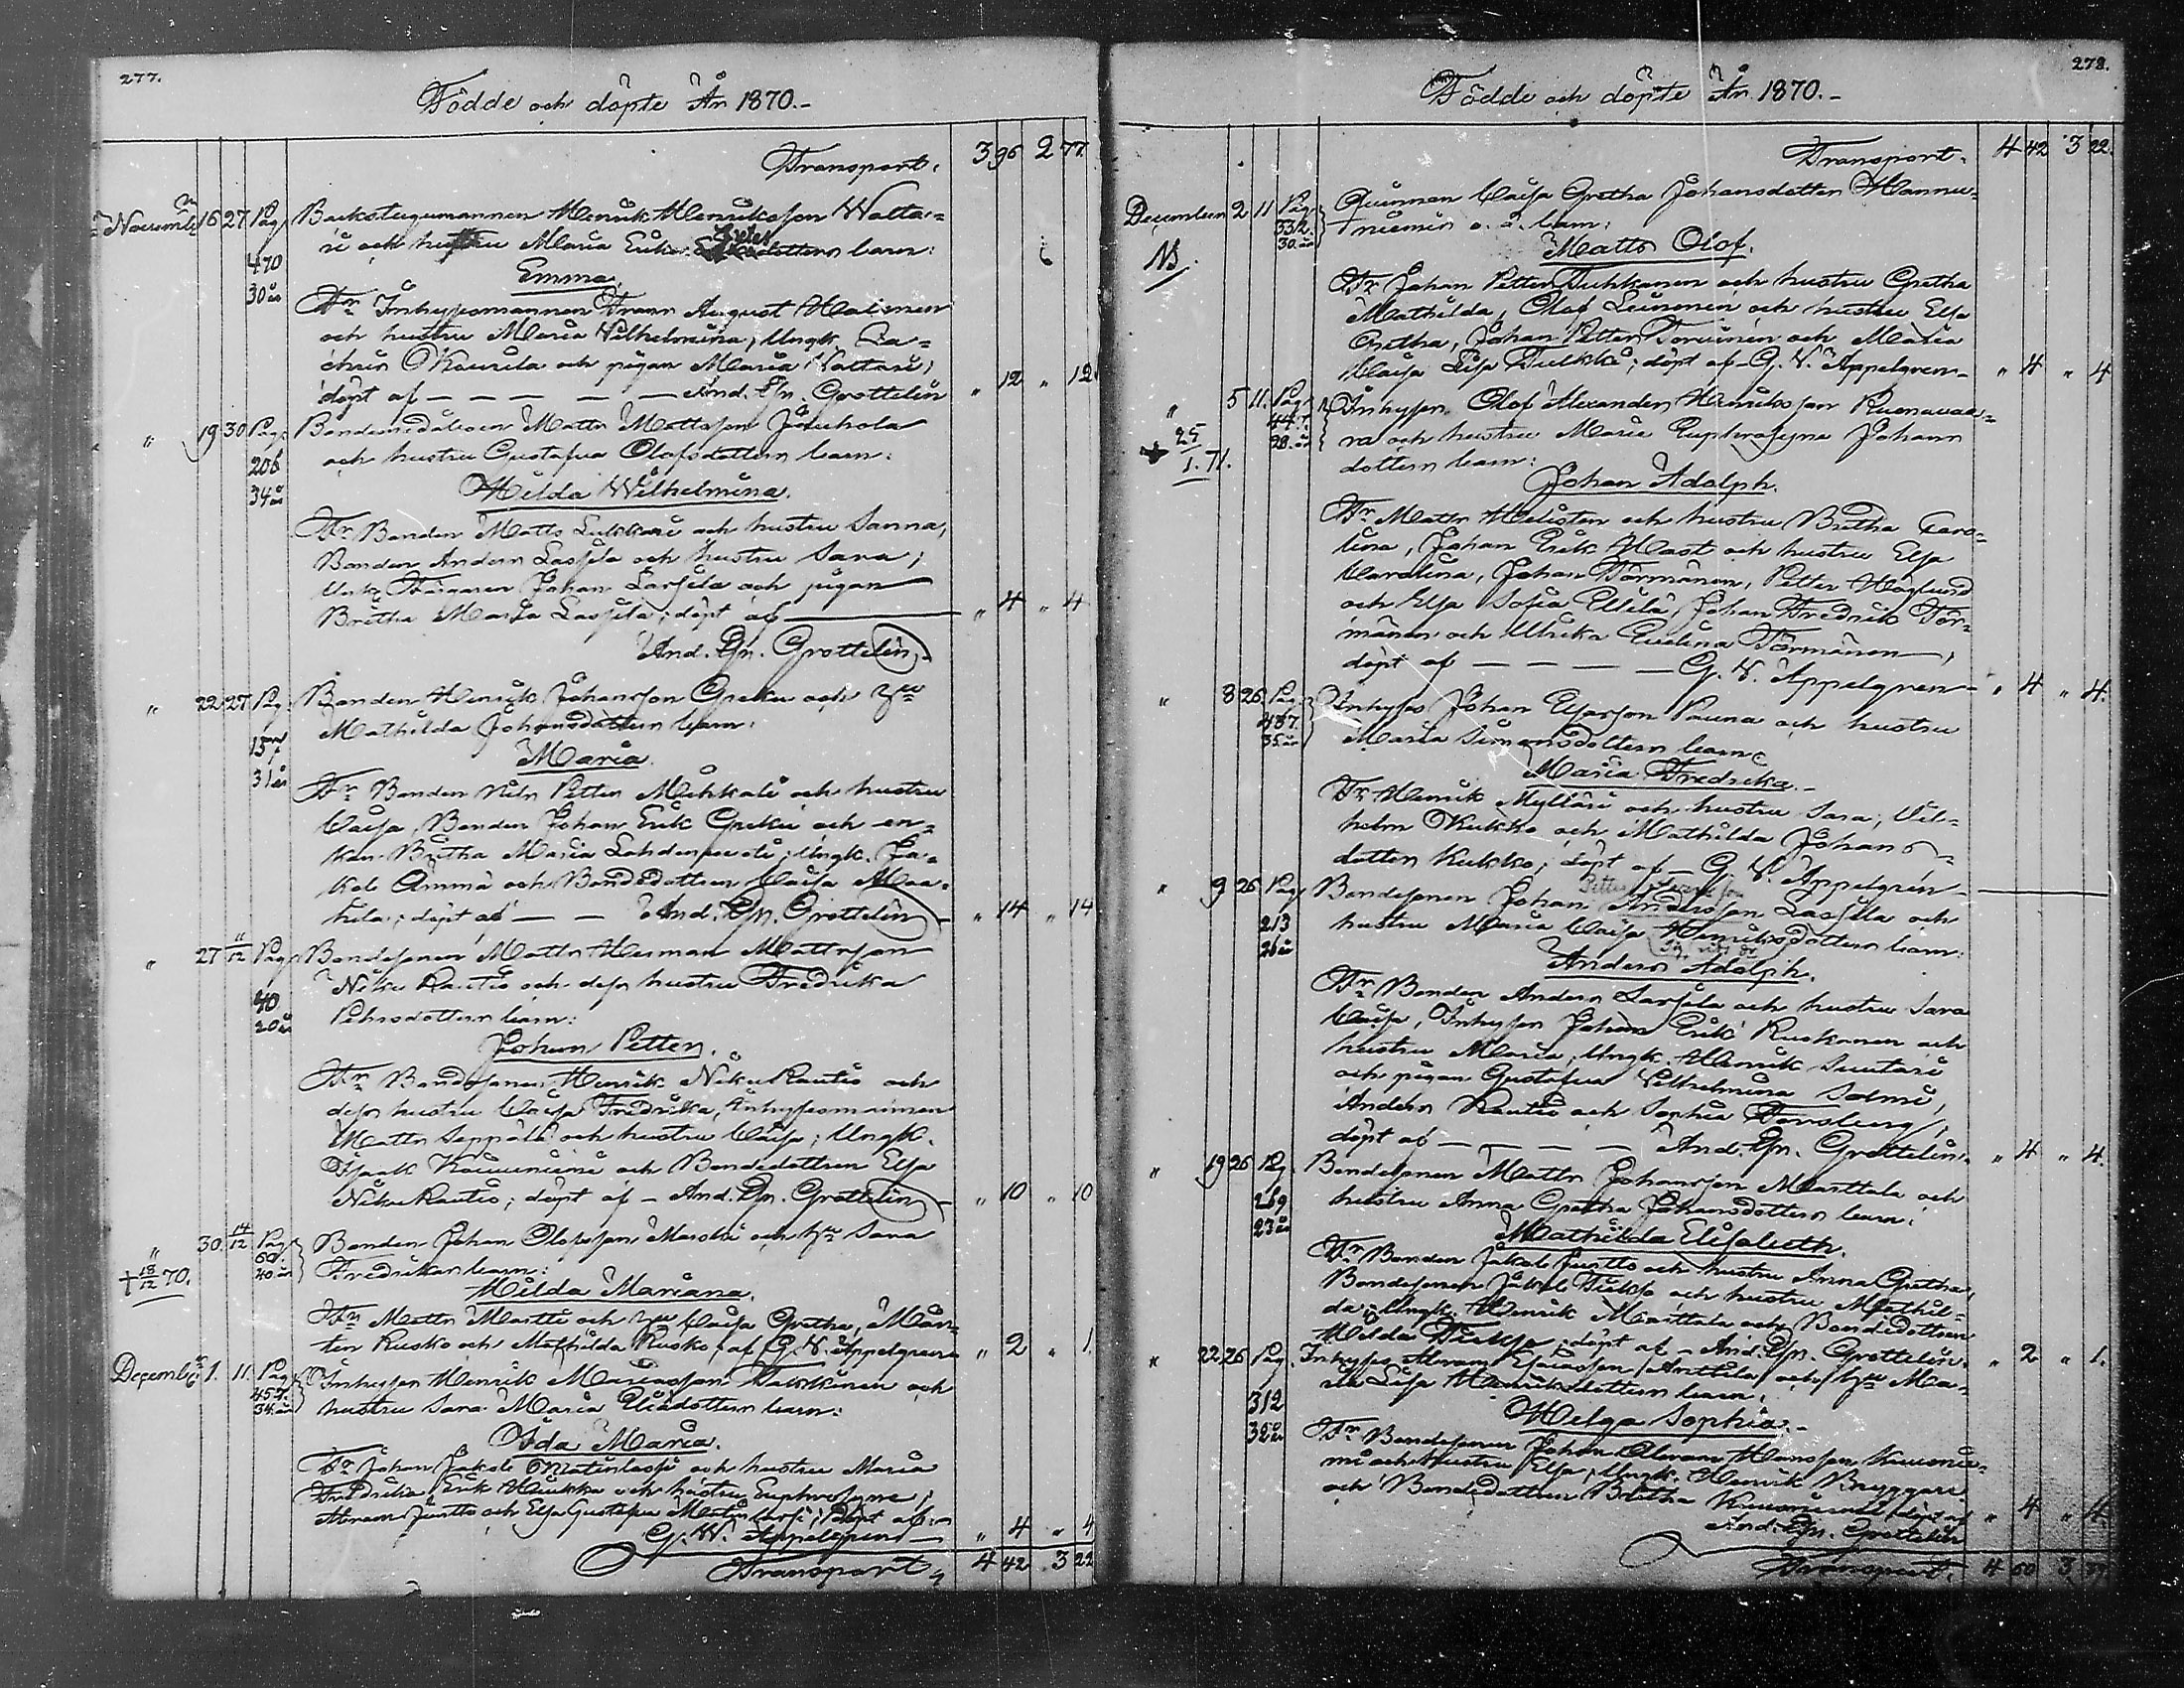 277.
Födde och döpte År 1870.-
Transport. 3 96 2 77.
Novemb. 16 27 Pag. 470 30 år Backstugumannen Henrik Henriksson Watta-
ri och hustru Maria Erika dotters barn:
Emma.
Fr. Inhysesmannen Frans August Malmen
och hustru Maria Vilhelmina, Ungk. Za-
chris Kaurila och pigan Maria Vattari,
döpt af — — — — — And. Gr. Grottelin " 12 " 12
" 19 30 Pag. 206 34 år Bondemågen Matts Mattsson Jouhola
och hustru Gustafva Olofsdotters barn:
Hilda Wilhelmina.
Fr. Bonden Matts Lukkari och hustru Sanna,
Bonden Anders Lassila och hustru Sara,
Färgaren Johan Lassila och pigan
Britha Maria Lassila; döpt af — " 4 " 4
And. Gr. Grottelin.
" 22 27 Pag. 31 år Bonden Henrik Johansson Greku och Hu
Mathilda Johansdotters barn:
Maria.
Fr. Bonden Nils Petter Mikkali och hustru
Caisa, Bonden Johan Erik Greku och en-
kan Britha Maria Lahdenperä, Ungk. Ja-
kob Ämmä och Bondedottren Caisa Maa-
hila; döpt af — — And. Gr. Grottelin " 14 " 14
" 27 11/12 Pag. 40 20 år Bondesonen Matts Herman Mattsson
Niku Rautio och dess hustru Fredrika
Pehrsdotters barn:
Johan Petter.
Fr. Bondesonen Henrik Niku Rautio och
dess hustru Caisa Fredrika, Inhysesmannen
Matts Seppälä och hustru Caisa; Ungk.
Isaak Kouvuniemi och Bondedottren Elsa
Niku Rautio; döpt af - And. Gr. Grottelin " 10 " 10
" 30. 14/12 Pag. 60. 40 år Bonden Johan Olofsson Marski och Hu Sara
Fredrikas barn:
† 18/12 70.
Hilda Mariana.
Fr. Matts Martti och Hu Caisa Gretha, Mår-
ten Rusko och Mathilda Rusko, af G. V. Appelgren " 2 " 1.
Decemb. 1. 11. Pag. 457. 34 år Inhyses Henrik Mariasson Takkinen och
hustru Sara Maria Eliædotters barn:
Ida Maria.
Fr. Johan Jakob Matinlassi och hustru Maria
Fredrika, Erik Hiukka och hustru Euphrosyne,
Abram Juntto och Elsa Gustafva Matinlassi; döpt af
G. W. Appelgren — " 4 " 4
Transport 4 42 3 22
278.
Födde och döpte År 1870.-
Transport. 4 42 3 22.
December 2 11 Pag. 332. 30 år Quinnan Caisa Gretha Johansdotter Hannu-
niemis o. ä. barn:
NB.
Matts Olof.
Fr. Johan Petter Tuhkanen och hustru Gretha
Mathilda, Olof Leinonen och hustru Elsa
Gretha, Johan Petter Torvinen och Maria
Caisa Lisa Pulkka; döpt af G. V. Appelgren - " 4 " 4
" 5 11. Pag. 447. 28 år Inhyses. Olof Alexander Henriksson Ruonavaa-
ra och hustru Maria Euphrosyna Johans
dotters barn:
† 25/1. 71.
Johan Adolph.
Fr. Matts Helisten och hustru Britha Caro-
lina, Johan Erik Mast och hustru Elsa
Carolina, Johan Törmänen, Petter Höglund
och Elsa Sofia Ellilä, Johan Fredrik Tör-
mänen och Ulrika Evelina Törmänen,
döpt af — — — — G. V. Appelgren - " 4 " 4.
" 8 26. Pag. 487. 35 år Inhyses Johan Esaiasson Pauna och hustru
Maria Simonsdotters barn:
Maria Fredrika.-
Fr. Henrik Mylläri och hustru Sara; Vil-
helm Kukko och Mathilda Johans-
dotter Kukko; döpt af - G. V. Appelgren -
" 9 26 Pag. 213 26 år Bondesonen Johan Andersson Lassila och
hustru Maria Caisa Henriksdotters barn:
Anders Adolph.
Fr. Bonden Anders Lassila och hustru Sara
Caisa, Inhyses Johan Erik Ruskonen och
hustru Maria; Ungk. Henrik Suutari
och pigan Gustafva Vilhelmina Salmi,
Anders Rautio och Sophia Forsberg;
döpt af — — — — And. Gr. Grottelin. " 4 " 4.
" 19 26 Pag. 269 23 år Bondesonen Matts Johansson Marttala och
hustru Anna Gretha Johansdotters barn:
Mathilda Elisabeth.
Fr. Bonden Jakob Juntto och hustru Anna Gretha,
Bondesonen Jakob Tuiksa och hustru Mathil-
da; Ungk. Henrik Marttala och Bondedottren
Hilda Tuiksa; döpt af - And. Gr. Grottelin. " 2 " 1.
" 22 26 Pag. 312 32 år Inhyses Abram Esaiasson Anttila och Hu Ma-
ria Lisa Henriksdotters barn:
Helga Sophia.-
Fr. Bondesonen Johan Abram Hansson Kuusnie-
mi och hustru Elsa; Ungk. Henrik Bryggari
och Bondedottren Britha Kuusniemi; döpt af " 4 " 4.
And. Gr. Grottelin
Transport. 4 60 3